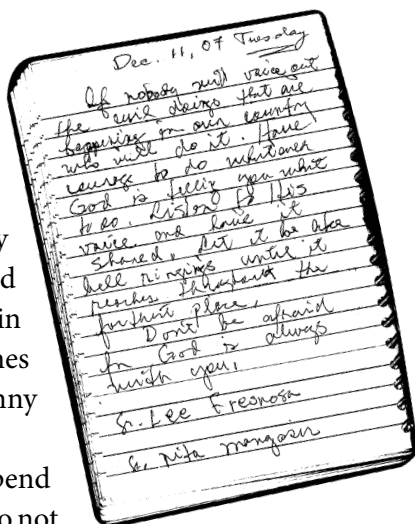 Dec. 11, 07 Tuesday
If nobody will voice out
the evil doings that are
happening in our country
who will do it. Have
courage to do whatever
God is telling you what
to do. Listen to His
voice and have it
shared. Let it be like
bell ringing until it
reaches throughout the
furthest place.
Don't be afraid
for God is always
with you.
Sr. Lee
Sr. Rita
y
d
in
nes
nny
pend
o not